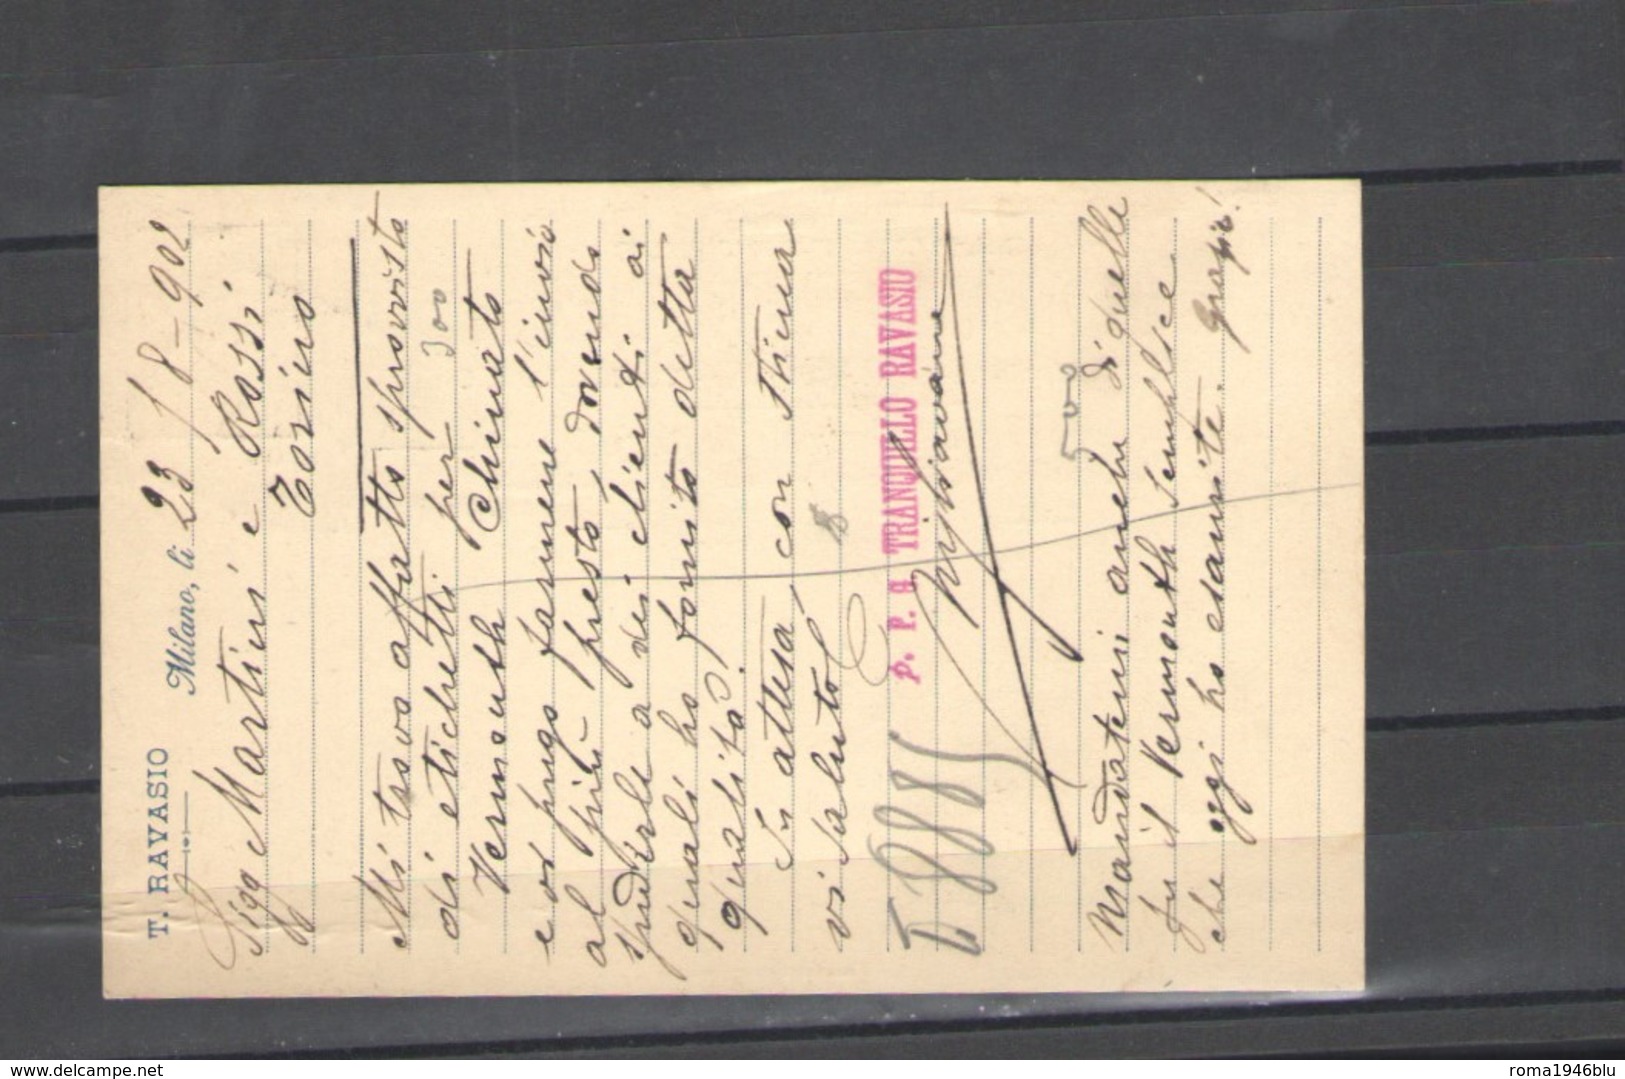 T. RAVASIO
Milano, li 23/8-902
Sigg Martini e Rossi
Torino
Mi trovo affatto sprovvisto
di etichetti per 300
Vermouth Chinato
e vi prego farmene l'invio
al più presto, dovendo
spedirle a dei clienti ai
quali ho fornito detta
qualità.
In attesa, con stima
vi saluto
p. p. a TRANQUILLO RAVASIO
500
Mandatemi anche di quelle
pel Vermouth semplice
che oggi ho esaurite. Grazie!
delcampe.net
roma1946blu